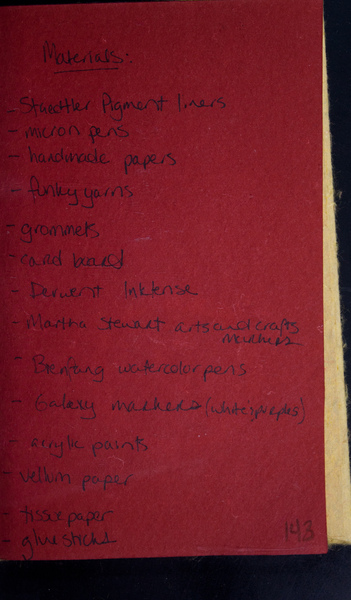 Materials:
- Staedtler Pigment liners
- micron pens
- handmade papers
- funky yarns
- grommets
- card board
- Derwent Inktense
- Martha Stewart arts and crafts
markers
- Bienfang watercolor pens
- Galaxy markers (white; purples)
- acrylic paints
- vellum paper
- tissue paper
- glue sticks
143